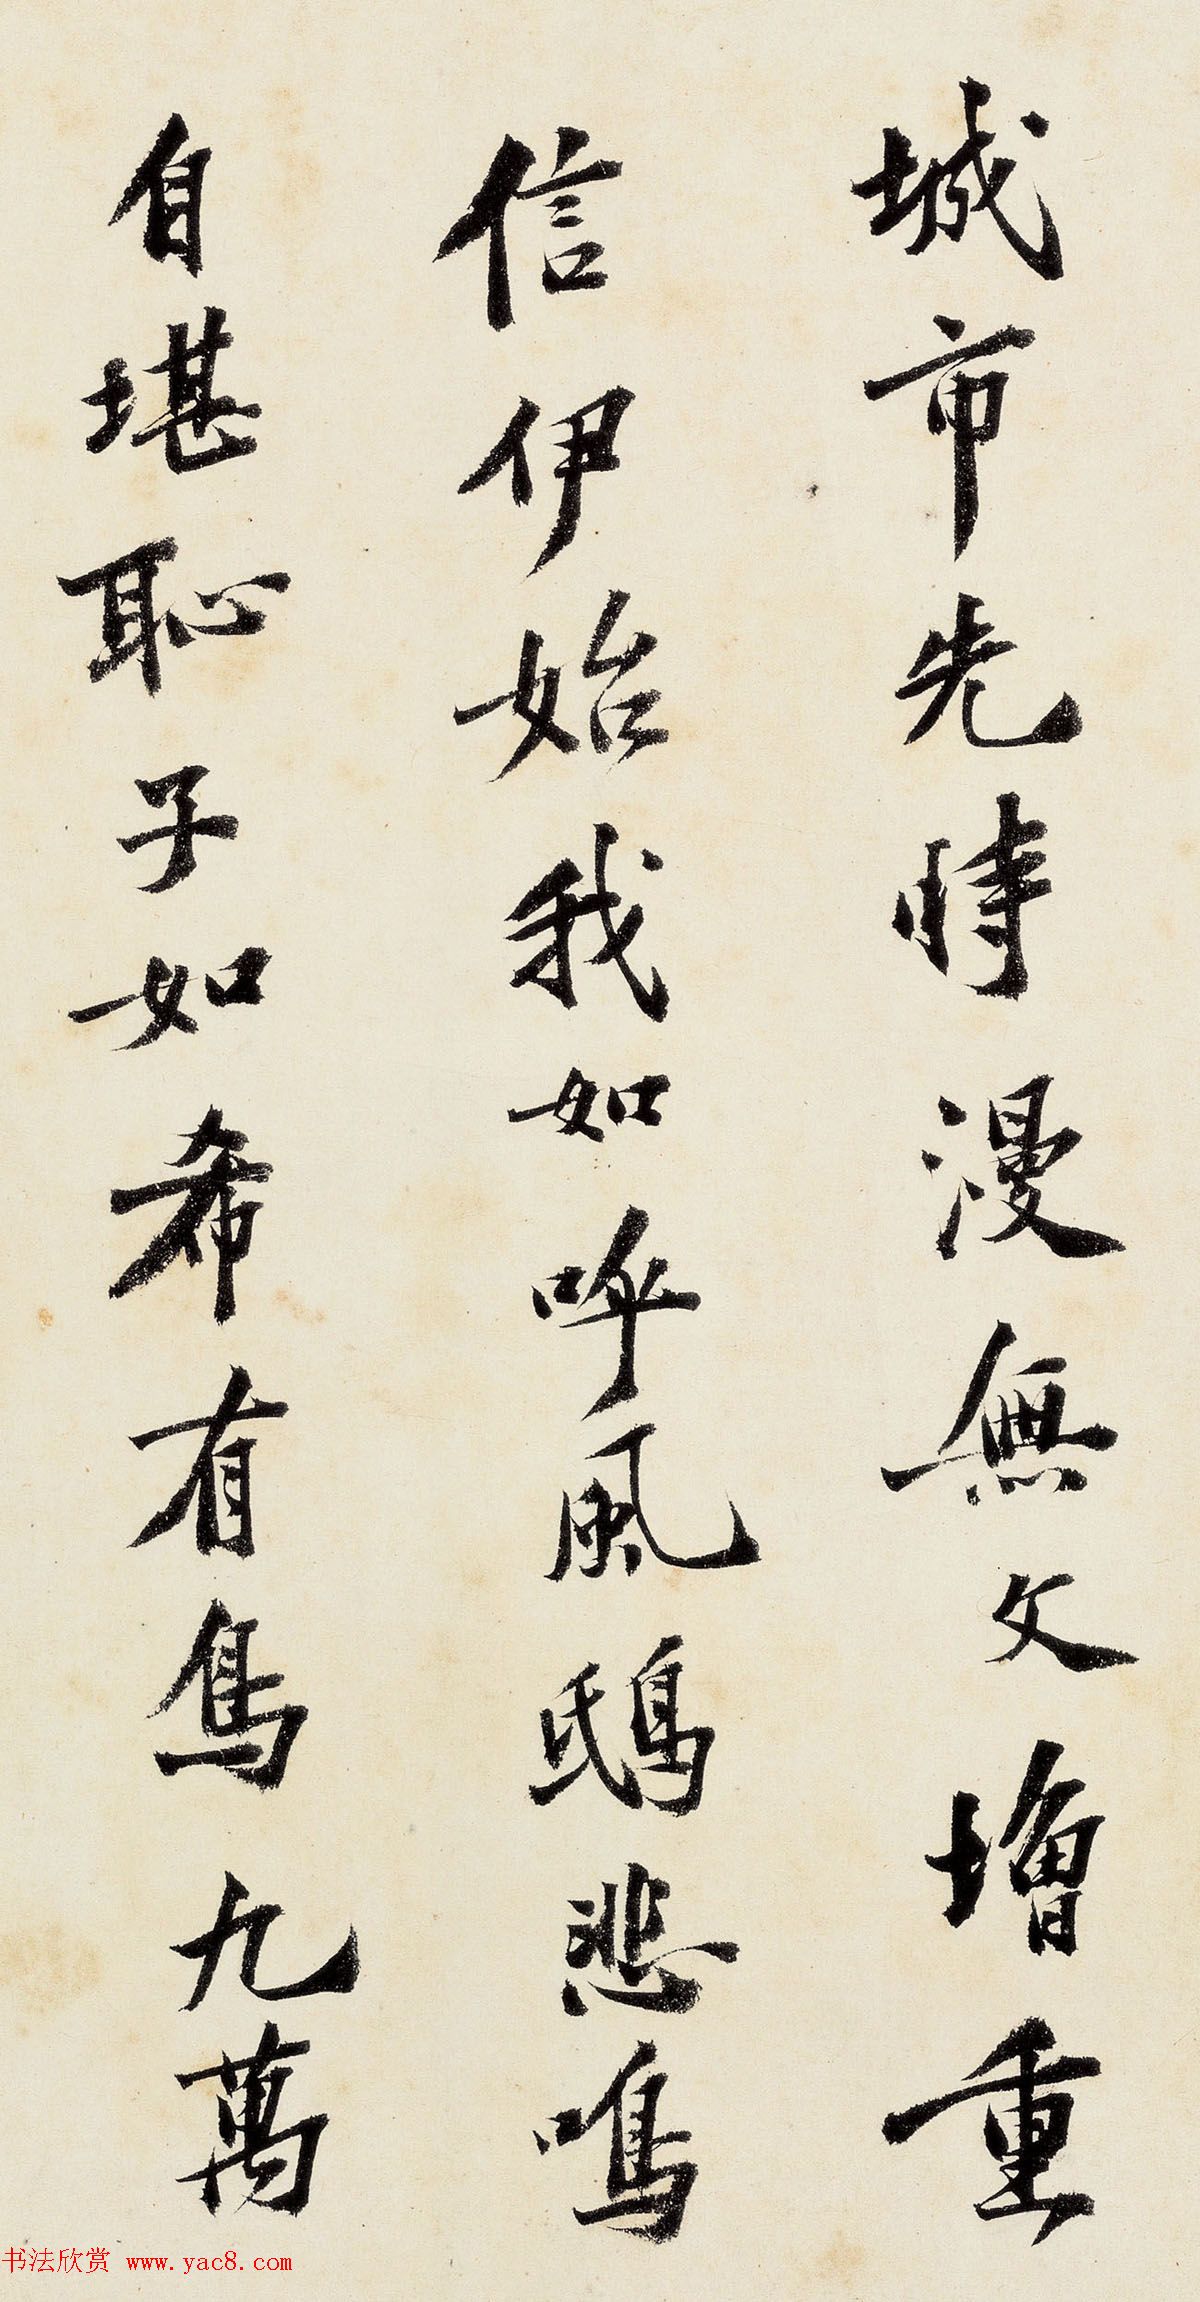 城市先時漫無文增重
信伊始我如呼風鴟悲鳴
自堪恥子如希有鳥九萬
书法欣赏 www.yac8.com